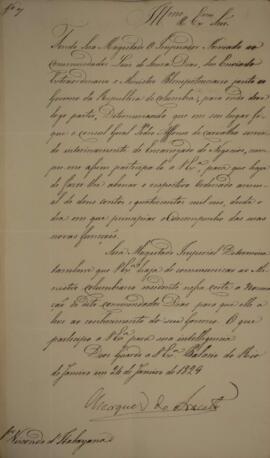 Illmo. e Exmo. Snr.
Tendo Sua Magestade O Imperador Nomeado ao
Commendador Luis de Souza Dias, Seu Enviado
Extraordinario e Ministro Plenipotenciario junto ao
Governo da Republica de Columbia, para onde deve
logo partir, Determinando que em seu lugar fi-
que o consul Geral João Affonso de Carvalho servin-
do interinamente de Encarregado de Negocios, cum-
pre-me assim participalo a V. Exa. para que haja
de fazer-lhe abonar o respectivo ordenado annu-
al de dous contos e quinhentos mil reis, desde o
dia em que principiar o desempenho das suas
novas funcções.
Sua Magestade Imperial Determina
tambem que V. Exa. haja de communicar ao Mi-
nistro columbiano residente nessa corte a Nomea-
ção do dito commendador Dias para que elle a
leve ao conhecimento do seu Governo. O que
participo a V. Exa. para sua intelligencia.
Deos Guarde a V. Exa. Palacio do Rio
de Janeiro em 24 de Janeiro de 1829
Marquez de Aracaty
Visconde d'Itabayana